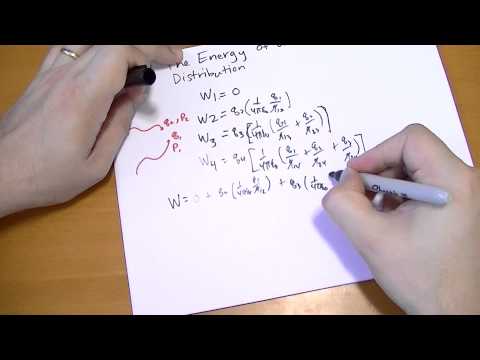 The Energy of
Distribution
W₁ = 0
W₂ = q₂ (1/4πε₀ q₁/r₁₂)
W₃ = q₃ [1/4πε₀ (q₁/r₁₃ + q₂/r₂₃)]
W₄ = q₄ [1/4πε₀ (q₁/r₁₄ + q₂/r₂₄ + q₃/r₃₄)]
W = 0 + q₂ (1/4πε₀ q₁/r₁₂) + q₃ (1/4πε₀
q₂, P₂
q₁
P₁